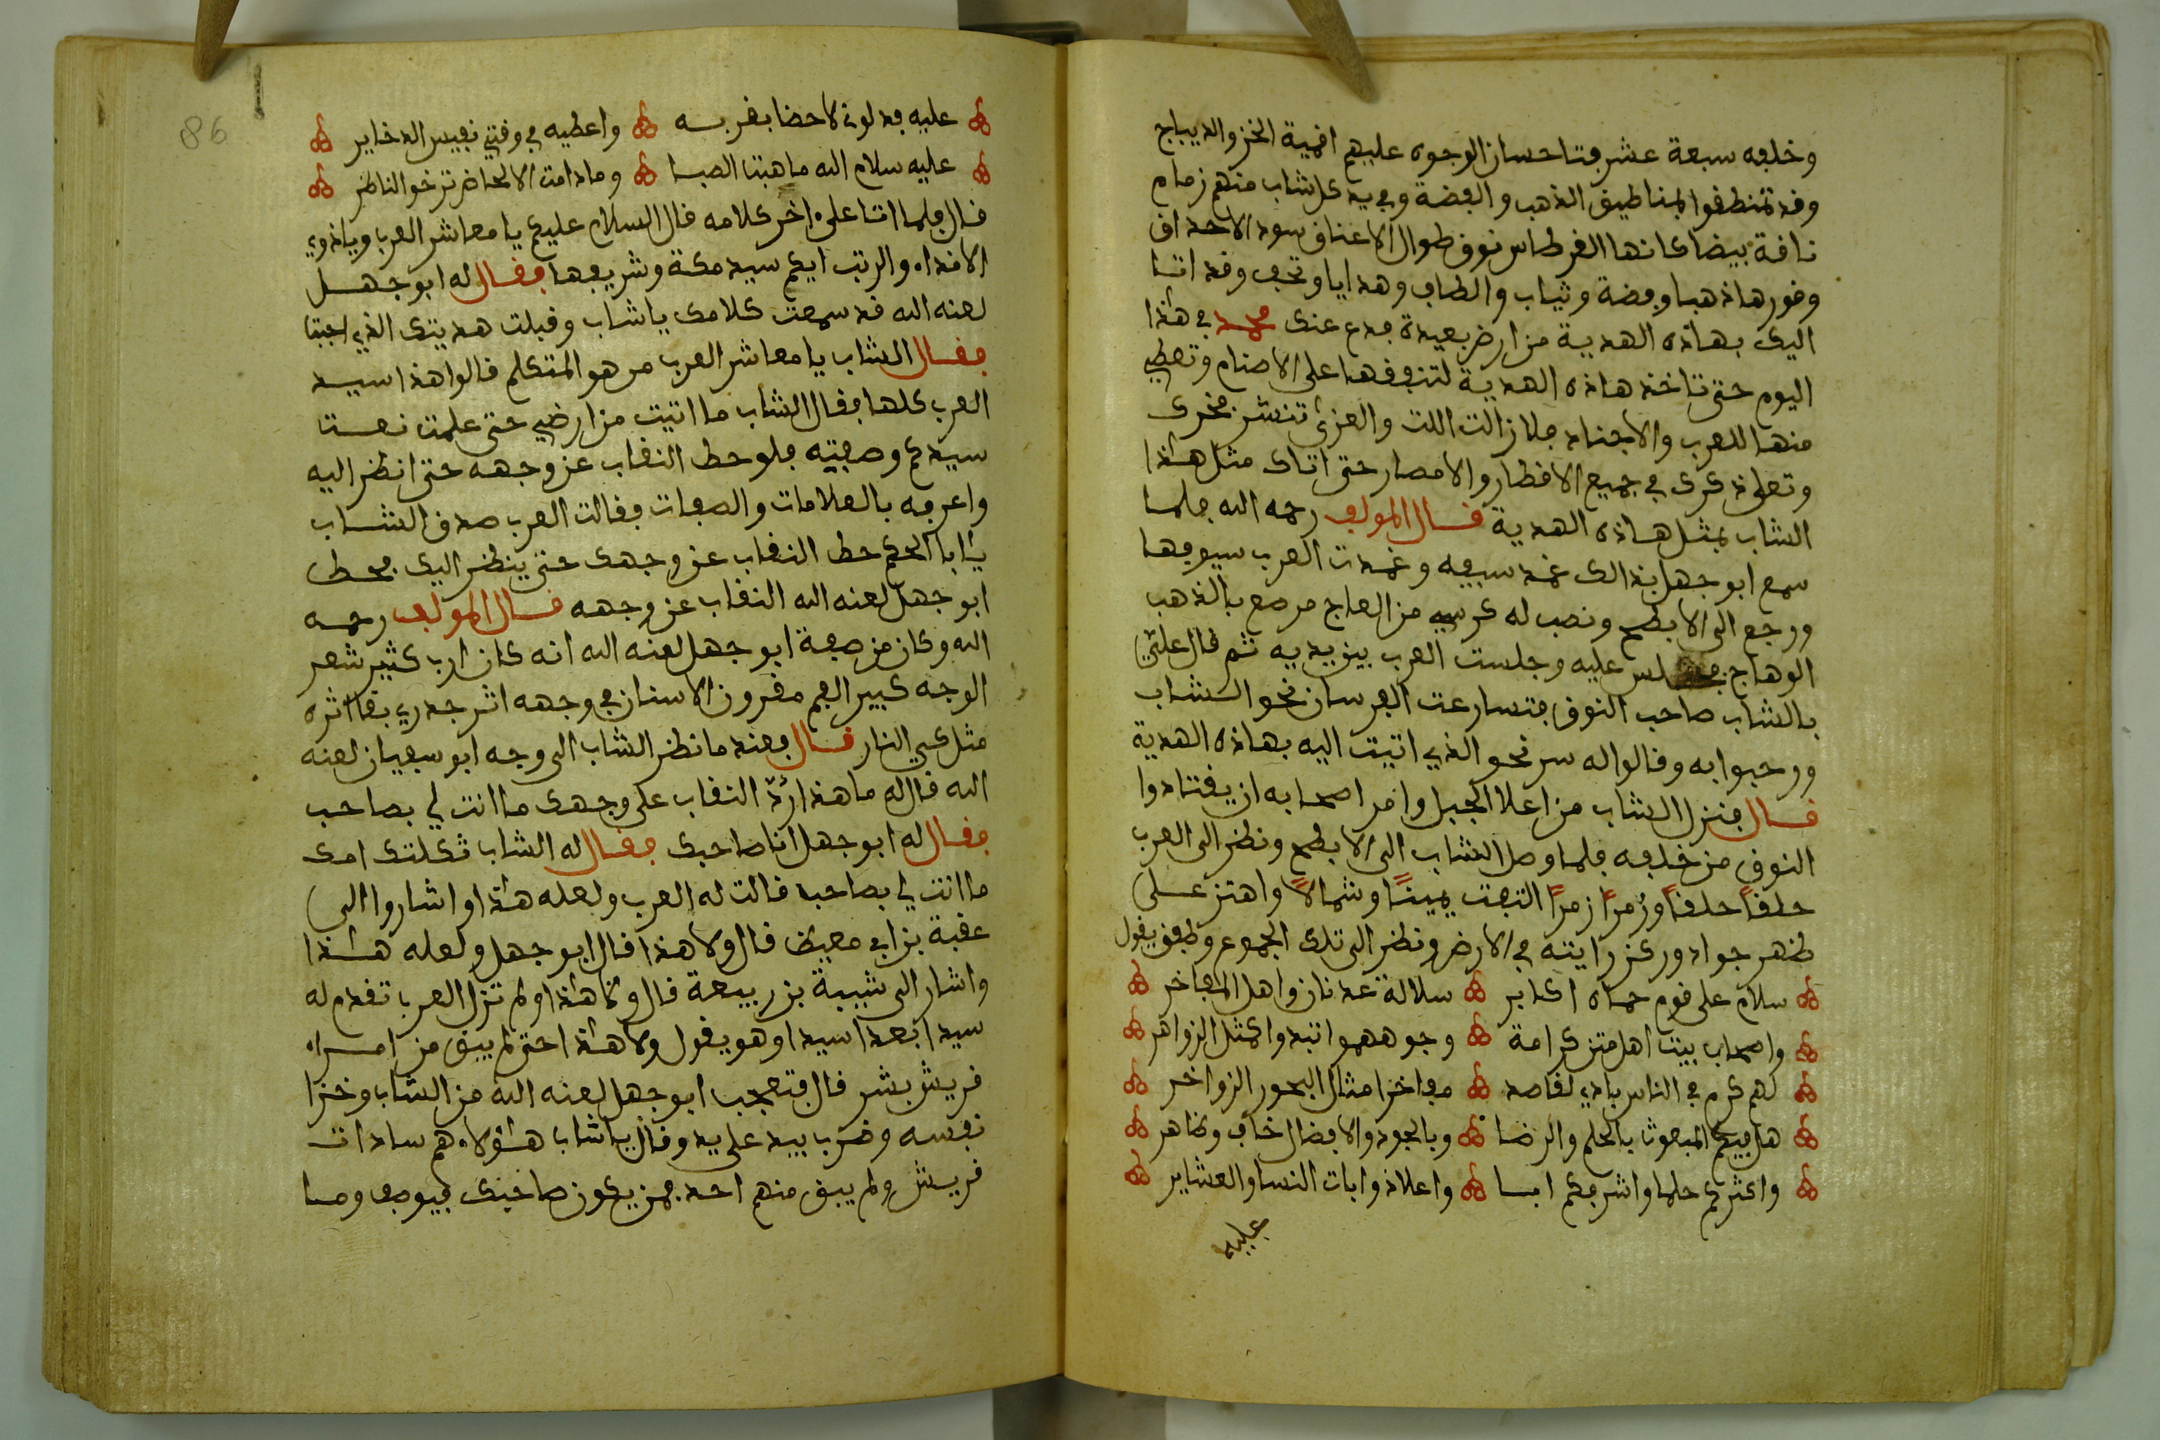 وخلفه سبعة عشر فتا حسان الوجوه عليهم اقمية الخز والديباج
وقد تمنطقوا بمناطيق الذهب والفضة وفي يد كل شاب منهم زمام
ناقة بيضا كانها القرطاس نوق طوال الاعناق سود الاحداق
وقورها ذهبا وفضة وثياب والطاف وهدايا وتحف وقد اتا
اليك بهاذه الهدية من ارض بعيدة فدع عنك محمد في هذا
اليوم حتى تاخذ هاذه الهدية لتنوفها على الاصنام وتعطي
منها للعرب والاجناد فلا زالت اللت والعزى تنشر فخرك
وتعلى ذكرك في جميع الاقطار والامصار حتى اتاك مثل هذا
الشاب بمثل هاذه الهدية قال المولف رحمه الله فلما
سمع ابو جهل بذالك غمد سيفه وغمدت العرب سيوفها
ورجع الى الابطح ونصب له كرسي من العاج مرصع بالذهب
الوهاج فجلس عليه وجلست العرب بين يديه ثم قال علي
بالشاب صاحب النوق فتسارعت الفرسان نحو الشاب
ورحبوا به وقالوا له سر نحو الذي اتيت اليه بهاذه الهدية
قال فنزل الشاب من اعلا الجبل وامر اصحابه ان يقتادوا
النوق من خلفه فلما وصل الشاب الى الابطح ونظر الى العرب
حلقا حلقا وزمرا زمرا التفت يمينا وشمالا واهتز على
ظهر جواد وركز رايته في الارض ونظر الى تلك الجموع وطفق يقول
سلام على قوم حماه اكابر سلالة عدنان واهل المفاخر
واصحاب بيت اهل متن كرامة وجوههموا تبدوا كمثل الزواهر
لهم كرم في الناس بادي لقاصد مفاخر امثال البحور الزواخر
هل فيكم المبعوث بالحلم والرضا وبالجود والافضال خاف وظاهر
واكثركم حلما واشرفكم ابا واعلا ذوابات النسا والعشاير
عليه
86
عليه قد لوني لاحضا بقربه واعطيه في وقتي نفيس الذخاير
عليه سلام الله ما هبتا الصبا وما دامت الالحاض ترخو الناظر
قال فلما اتا على اخر كلامه قال السلام عليكم يا معاشر العرب وياذوي
الاقداه والرتب ايكم سيد مكة وشريفها فقال له ابو جهل
لعنه الله قد سمعت كلامك يا شاب وقبلت هديتك الذي اجبتا
فقال الشاب يا معاشر العرب من هو المتكلم قالوا هذا سيد
العرب كلها فقال الشاب ما اتيت من ارضي حتى علمت نعت
سيدكم وصفته فلو حط النقاب عن وجهه حتى انظر اليه
واعرفه بالعلامات والصفات فقالت العرب صدق الشاب
يا ابا الحكم حط النقاب عن وجهك حتى ينظر اليك فحط
ابو جهل لعنه الله النقاب عن وجهه قال المولف رحمه
الله وكان من صفة ابو جهل لعنه الله انه كان ارب كثير شعر
الوجه كبير الفم مفرون الاسنان في وجهه اثر جدري بقا اثره
مثل كي النار قال فعند ما نظر الشاب الى وجه ابو سفيان لعنه
الله قال له ما هذا ارد النقاب على وجهك ما انت لي بصاحب
فقال له ابو جهل انا صاحبك فقال له الشاب ثكلتك امك
ما انت لي بصاحب قالت له العرب ولعله هذا واشاروا الى
عقبة بن ابي معيط قال ولا هذا قال ابو جهل ولعله هذا
واشار الى شيبة بن ربيعة قال ولا هذا ولم تزل العربا تقدم له
سيدا بعد اسيدا وهو يقول ولا هذا حتى لم يبق من امراء
قريش بشر قال فتعجب ابو جهل لعنه الله من الشاب وخزا
نفسه وضرب بيد على يد وقال يا شاب هؤلاء هم سادات
قريش ولم يبق منهم احد فمن يكون صاحبك فيوصف وما